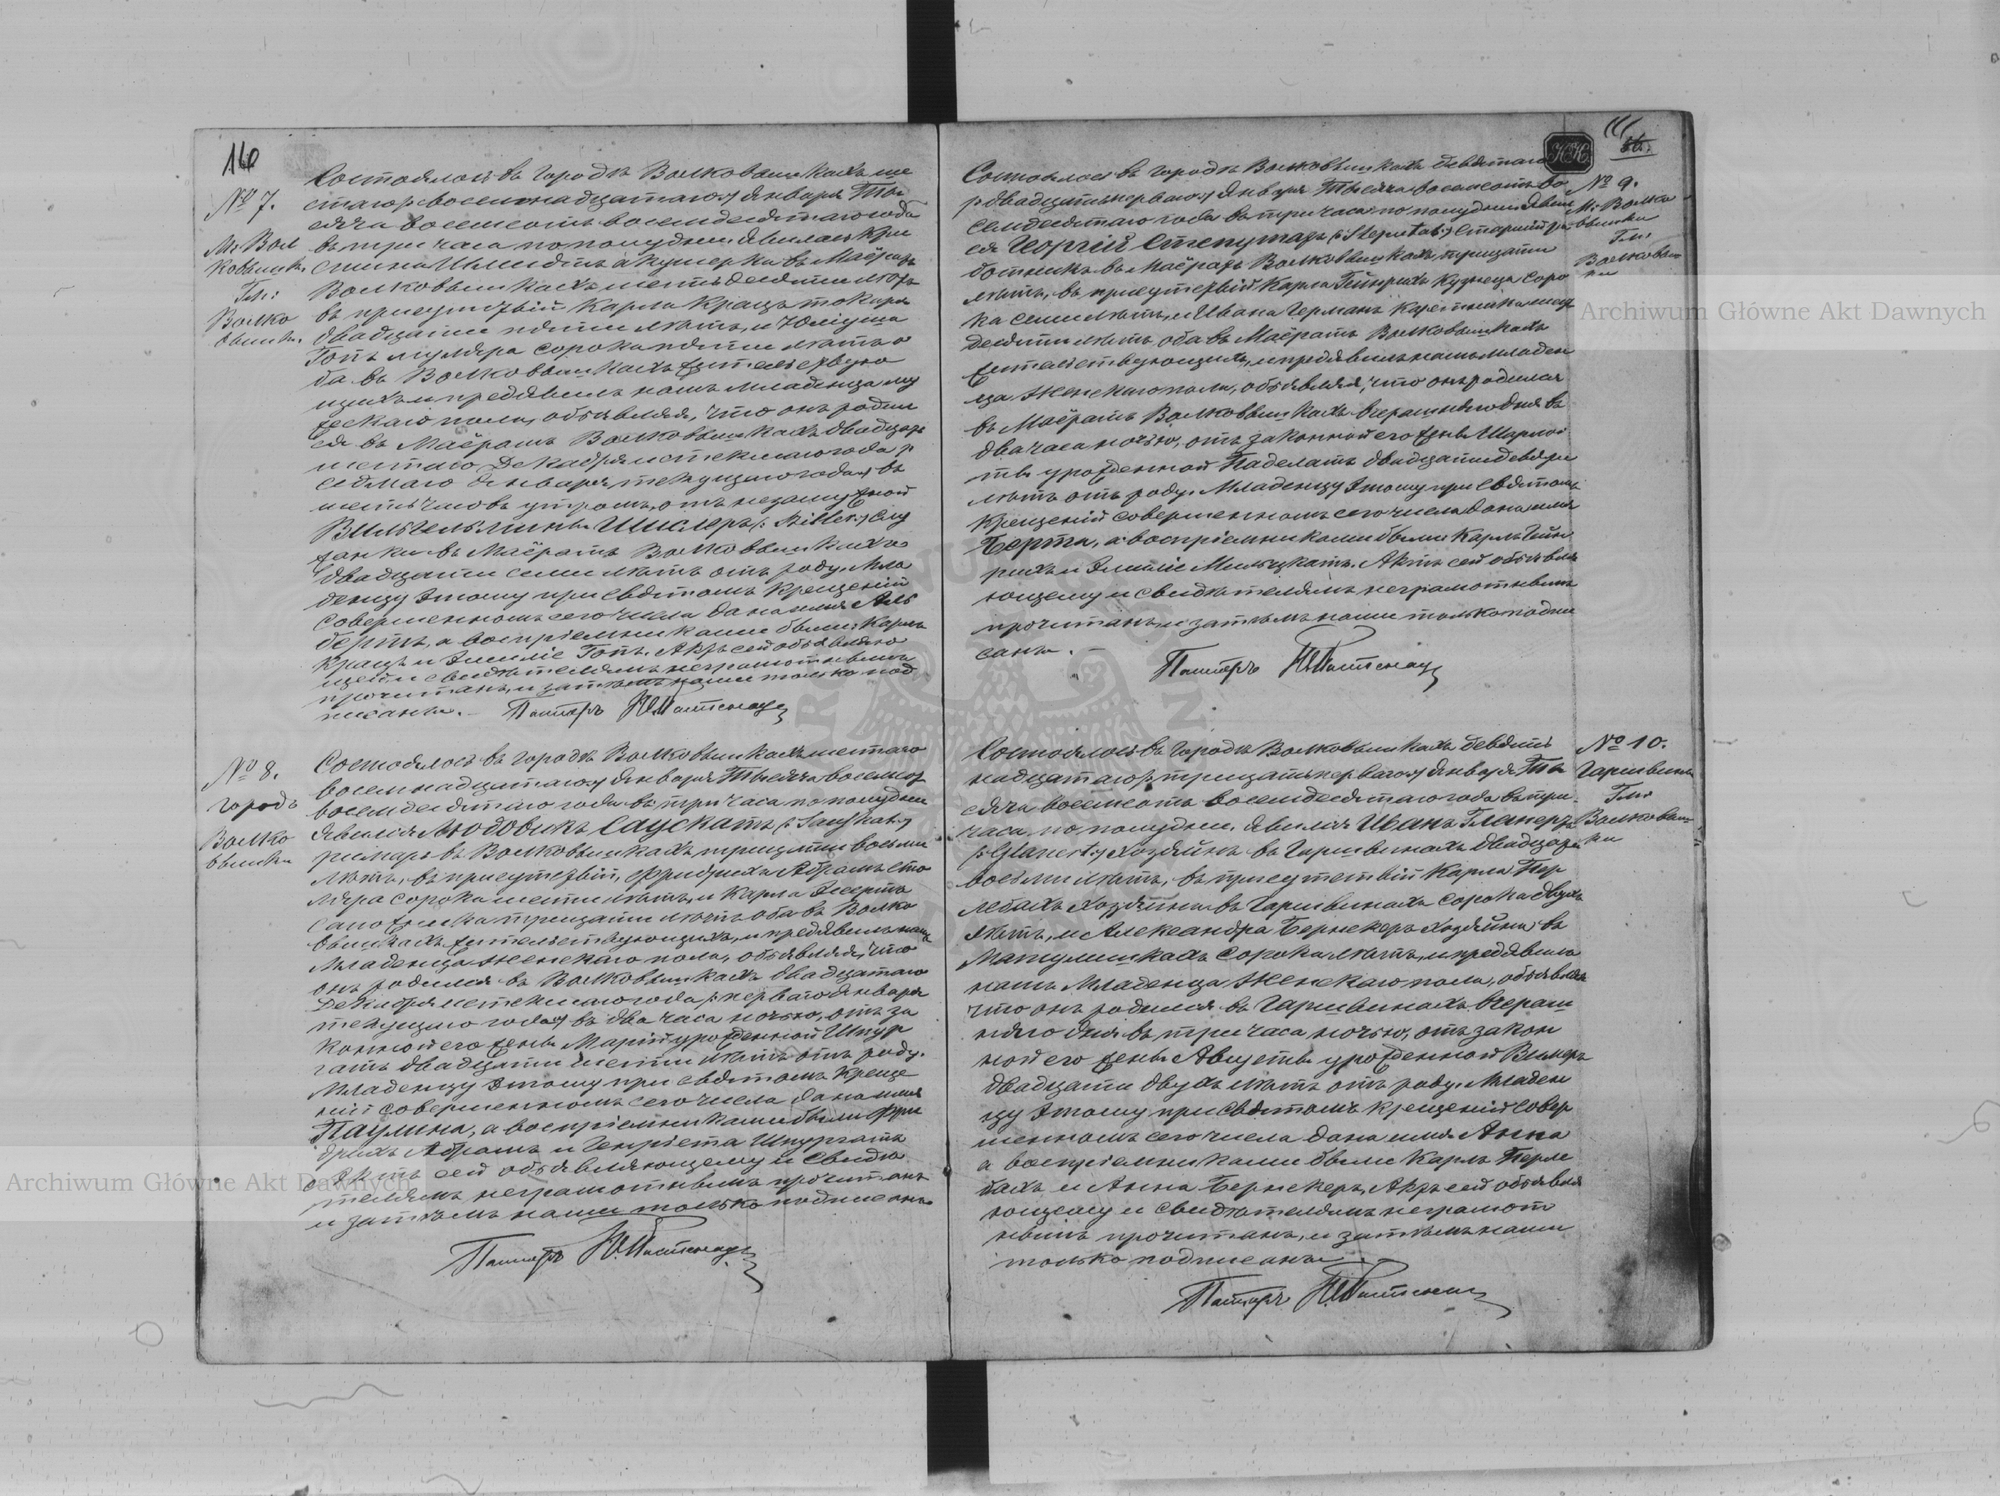 116
№ 7.
М: Вол
ковышк.
Гм:
Волко
вышки.
Состоялось въ городѣ Волковышкахъ ше
стаго /: восемнадцатаго :/ Января Ты
сяча восемьсотъ восемьдесятаго года
въ три часа по полудни. Явилась Кри
стина Шмидтъ акушерка въ Маіоратѣ
Волковышкахъ шестьдесяти лѣтъ
въ присутствіи Карла Кращъ токаря
двадцати пяти лѣтъ, и Юліуша
Гопъ муляра сорока пяти лѣтъ о
ба въ Волковышкахъ жительствую
щихъ и предъявила намъ младенца му
жескаго пола, объявляя, что онъ родил
ся въ Маіоратѣ Волковышкахъ двадцать
шестаго Декабря истекшаго года /:
седьмаго Января текущаго года :/ въ
шесть часовъ утромъ, отъ незамужной
Вильгельмины Шислеръ слу
жанки въ Маіоратѣ Волковышкахъ
двадцати семи лѣтъ отъ роду. Мла
денцу этому при Святомъ Крещеніи
совершенномъ сего числа дано имя Аль
бертъ, а воспріемниками были: Карлъ
Кращъ и Эмиліе Гопъ. Актъ сей объявляю
щей и свидѣтелямъ неграмотнымъ
прочитанъ, и затѣмъ нами только под
писанъ. – Пасторъ
№ 8.
городъ
Волко
вышки
Состоялось въ городѣ Волковышкахъ шестаго
восемнадцатаго :/ Января Тысяча восемьсот
восемьдесятаго года въ три часа по полудни
Явился Людовикъ Саускатъ
римарь въ Волковышкахъ, тридцати восьми
лѣтъ, въ присутствіи, Фридриха Абрамъ сто
ляра сорока шести лѣтъ, и Карла
сапожника тридцати лѣтъ оба въ Волко
вышкахъ жительствующихъ, и предъявилъ намъ
младенца женскаго пола, объявляя, что
онъ родился въ Волковышкахъ двадцатаго
Декабря истекшаго года /: перваго Января
текущаго года :/ въ два часа ночью, отъ за
конной его жены Маріи урожденной Шпур
гатъ двадцати шести лѣтъ отъ роду.
Младенцу этому при Святомъ Креще
ніи совершенномъ сего числа дано имя
Паулина, а воспріемниками были Фри
дрихъ Абрамъ и Генріета Шпургатъ
Актъ сей объявляющему и Свидѣ
телямъ неграмотнымъ прочитанъ
и затѣмъ нами только подписанъ.
Пасторъ
Состоялось въ городѣ Волковышкахъ девятаго
/: двадцать перваго :/ Января Тысяча восемьсотъ во
семьдесятаго года въ три часа по полудни. Явил
ся Георгій Степутатъ /: Steputat :/ старшій ра
ботникъ въ Маіоратѣ Волковышкахъ, тридцати
лѣтъ, въ присутствіи Карла Гейнрихъ кузнеца соро
ка семи лѣтъ, и Ивана Германъ каретника шест
десяти лѣтъ, оба въ Маіоратѣ Волковышкахъ
жительствующихъ, и предъявилъ намъ младен
ца женскаго пола, объявляя, что онъ родился
въ Маіоратѣ Волковышкахъ вчерашняго дня въ
два часа ночью, отъ законной его жены Шарлот
ты урожденной Паделатъ двадцати девяти
лѣтъ отъ роду. Младенцу этому при Святомъ
Крещеніи совершенномъ сего числа дано имя
Берта, а воспріемниками были Карлъ Гейн
рихъ и Эмиліе Мильчкатъ. Актъ сей объявля
ющему и свидѣтелямъ неграмотнымъ
прочитанъ, и затѣмъ нами только подпи
санъ. –
Пасторъ
КК
№ 9.
М: Волко
вышки
Гм:
Волковыш
ки
Состоялось въ городѣ Волковышкахъ девят
надцатаго /: тридцать перваго :/ Января Ты
сяча восемьсотъ восемьдесятаго года въ три
часа по полудни. Явился Иванъ Гланертъ
/: Glanert :/ хозяинъ въ Гаршвинахъ двадцати
восьми лѣтъ, въ присутствіи Карла Пер
лебахъ хозяина въ Гаршвинахъ сорока двухъ
лѣтъ, и Александра Бернекеръ хозяина въ
Матулишкахъ сорока лѣтъ, и предъявилъ
намъ младенца женскаго пола, объявляя
что онъ родился въ Гаршвинахъ вчераш
няго дня въ три часа ночью, отъ закон
ной его жены Августы урожденной Винеръ
двадцати двухъ лѣтъ отъ роду. Младен
цу этому при Святомъ Крещеніи совер
шенномъ сего числа дано имя Анна
а воспріемниками были Карлъ Перле
бахъ и Анна Бернекеръ. Актъ сей объявля
ющему и свидѣтелямъ неграмот
нымъ прочитанъ, и затѣмъ нами
только подписанъ.
Пасторъ
№ 10.
Гаршвины
Гм:
Волковыш
ки
Archiwum Główne Akt Dawnych
Archiwum Główne Akt Dawnych